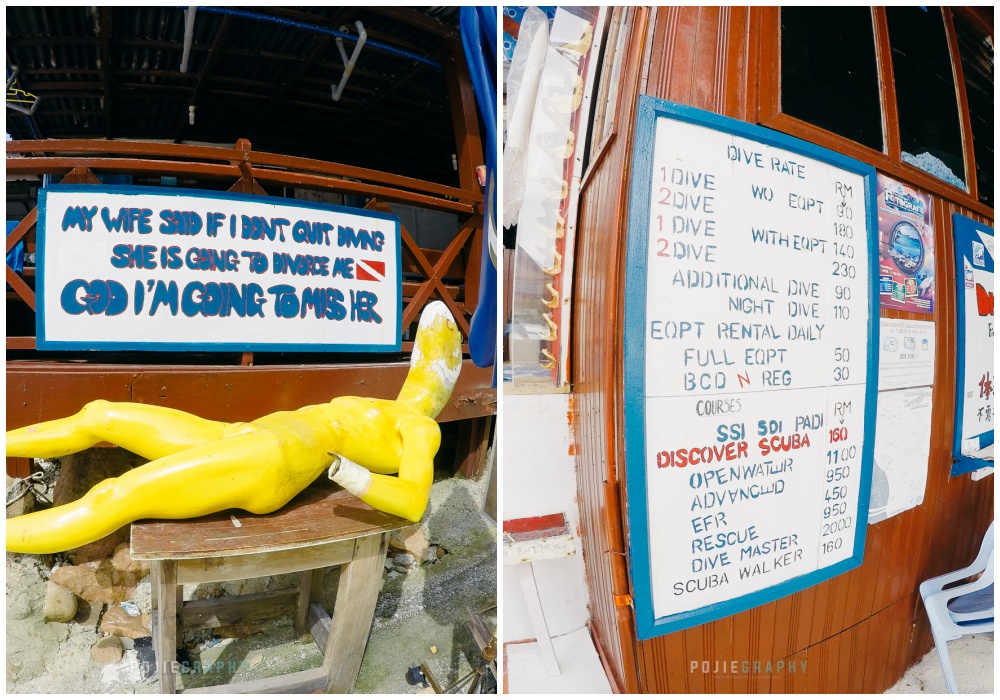 MY WIFE SAID IF I DONT QUIT DIVING
SHE IS GOING TO DIVORCE ME
GOD I'M GOING TO MISS HER
POJIEGRAPHY
DIVE RATE
RM
1 DIVE WO EQPT 90
2 DIVE 180
1 DIVE WITH EQPT 140
2 DIVE 230
ADDITIONAL DIVE 90
NIGHT DIVE 110
EQPT RENTAL DAILY
FULL EQPT 50
BCD N REG 30
COURSES RM
SSI SDI PADI
DISCOVER SCUBA 160
OPENWATER 1100
ADVANCED 950
EFR 450
RESCUE 950
DIVE MASTER 2000
SCUBA WALKER 160
POJIEGRAPHY